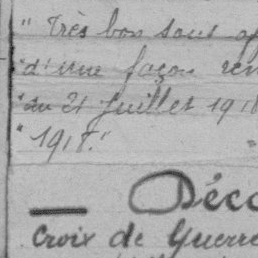 " Très bon sous
" d'une façon
" du 21 Juillet 191
" 1918."
Croix de Guerre